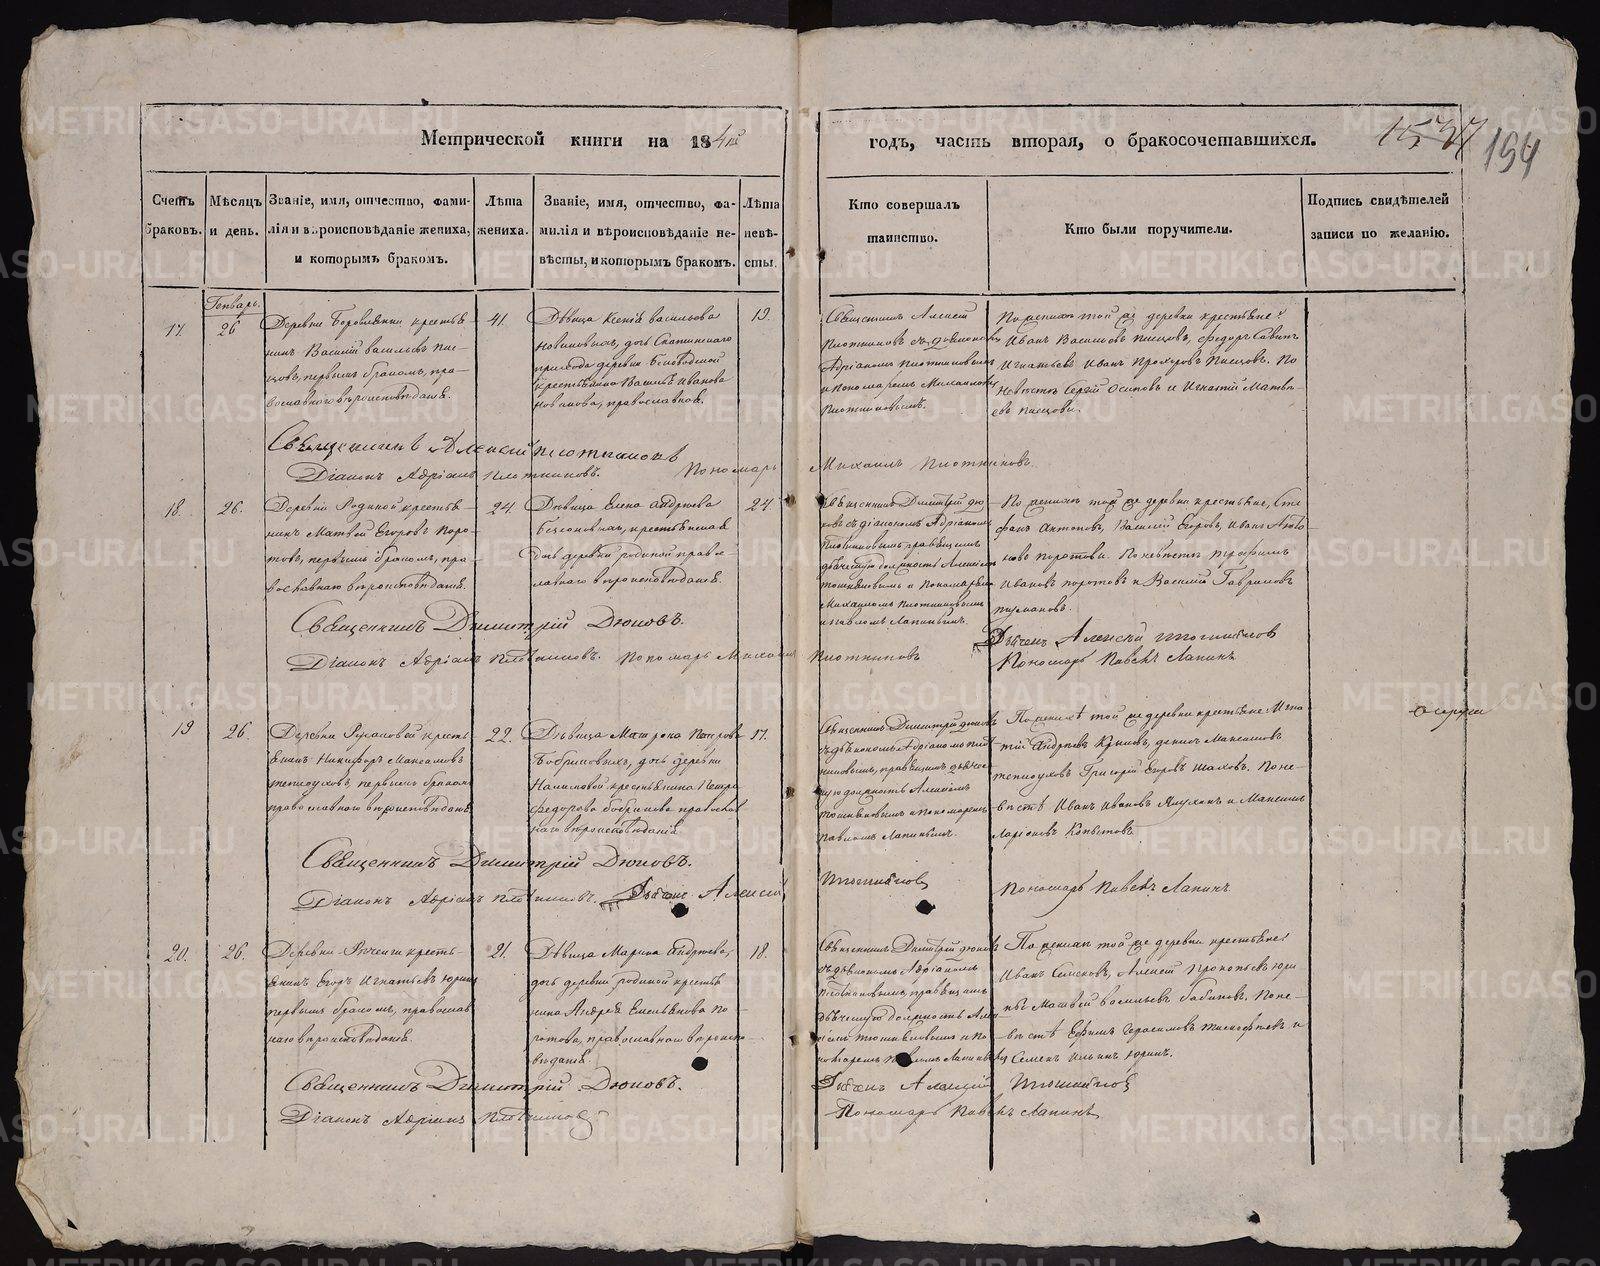 Метрической книги на 184
годъ, часть вторая, о бракосочетавшихся.
1537
194
Счетъ браковъ.
Мѣсяцъ и день.
Званіе, имя, отчество, фами-
лія и вѣроисповѣданіе жениха,
и которымъ бракомъ.
Лѣта
жениха.
Званіе, имя, отчество, фа-
милія и вѣроисповѣданіе не-
вѣсты, и которымъ бракомъ.
Лѣта
невѣ-
сты.
Кто совершалъ
таинство.
Кто были поручители.
Подпись свидѣтелей
записи по желанію.
Генварь.
17.
26
Деревни Боровлянки крестья-
нинъ Василій Васильевъ Пис-
цовъ, первымъ бракомъ, пра-
вославнаго вѣроисповѣданія.
41.
Дѣвица Ксенія Васильева
Новикова, дочь
прихода деревни
крестьянина Василья Иванова
Новикова, православная.
19.
Священникъ Алексѣй
Плотниковъ съ діакономъ
Адріаномъ Плотниковымъ
и пономаремъ Михаиломъ
Плотниковымъ.
По женихѣ той же деревни крестьяне:
Иванъ Васильевъ Писцовъ, Федоръ Савинъ
Игнатьевъ Иванъ Прохоровъ Писцовъ. По
невѣстѣ Сергѣй Осиповъ и Игнатій Матвѣ-
евъ Писцовы.
Священникъ Алексѣй Плотниковъ
Діаконъ Адріанъ Плотниковъ. Пономарь Михаилъ Плотниковъ.
18.
26.
Деревни Родиной крестья-
нинъ Матвей Егоровъ Поро-
товъ, первымъ бракомъ, пра-
вославнаго вѣроисповѣданія.
24.
Дѣвица Елена Андреева
крестьянская
дочь деревни Родиной право-
славнаго вѣроисповѣданія.
24.
Священникъ Димитрій Дю-
ковъ съ діакономъ Адріаномъ
Плотниковымъ, правящимъ
дьяческую должность Алексѣемъ
и пономарями
Михаиломъ Плотниковымъ
и Павломъ Лапинымъ.
По женихѣ той же деревни крестьяне, Сте-
фанъ Антоновъ, Василій Егоровъ, Иванъ Анто-
новъ Поротовы. По невѣстѣ Трофимъ
Ивановъ Поротовъ и Василій Гавриловъ
Священникъ Димитрій Дюковъ.
Діаконъ Адріанъ Плотниковъ. Пономарь Михаилъ Плотниковъ
Дьячекъ Алексѣй
Пономарь Павелъ Лапинъ
19
26.
Деревни Русаковой кресть-
янинъ Никифоръ Максимовъ
Теплоуховъ, первымъ бракомъ
православнаго вѣроисповѣданія.
22.
Дѣвица Матрона Петрова
Бобриковыхъ, дочь деревни
Налимовой крестьянина Петра
Федорова Бобрикова православ-
наго вѣроисповѣданія.
17.
Священникъ Димитрій Дюковъ
съ діакономъ Адріаномъ Плот-
никовымъ, правящимъ дьячес-
кую должность Алексѣемъ
и пономаремъ
Павломъ Лапинымъ.
По женихѣ той же деревни крестьяне: Игна-
тій Андреевъ Денисъ Максимовъ
Теплоуховъ Григорій Егоровъ По не-
вѣстѣ Иванъ Ивановъ и Максимъ
Ларіоновъ Копытовъ
Священникъ Димитрій Дюковъ.
Діаконъ Адріанъ Плотниковъ. Дьячекъ Алексѣй
Пономарь Павелъ Лапинъ.
20.
26.
Деревни кресть-
янинъ Егоръ Игнатьевъ Юринъ
первымъ бракомъ, православ-
наго вѣроисповѣданія.
21.
Дѣвица Марина Андреева,
дочь деревни Родиной крестья-
нина Андрея Емельянова По-
ротова, православнаго вѣроиспо-
вѣданія.
18.
Священникъ Димитрій Дюковъ
съ діакономъ Адріаномъ
Плотниковымъ, правящимъ
дьяческую должность Алек-
сѣемъ и по-
номаремъ Павломъ Лапинымъ
По женихѣ той же деревни крестьяне:
Иванъ Семеновъ, Алексѣй Прокопьевъ Юри-
ны Матвей Васильевъ Бабиновъ. По не-
вѣстѣ Ефимъ Герасимовъ и
Семенъ Ильинъ Юринъ.
Священникъ Димитрій Дюковъ.
Діаконъ Адріанъ Плотниковъ
Дьячекъ Алексѣй
Пономарь Павелъ Лапинъ
METRIKI.GASO-URAL.RU